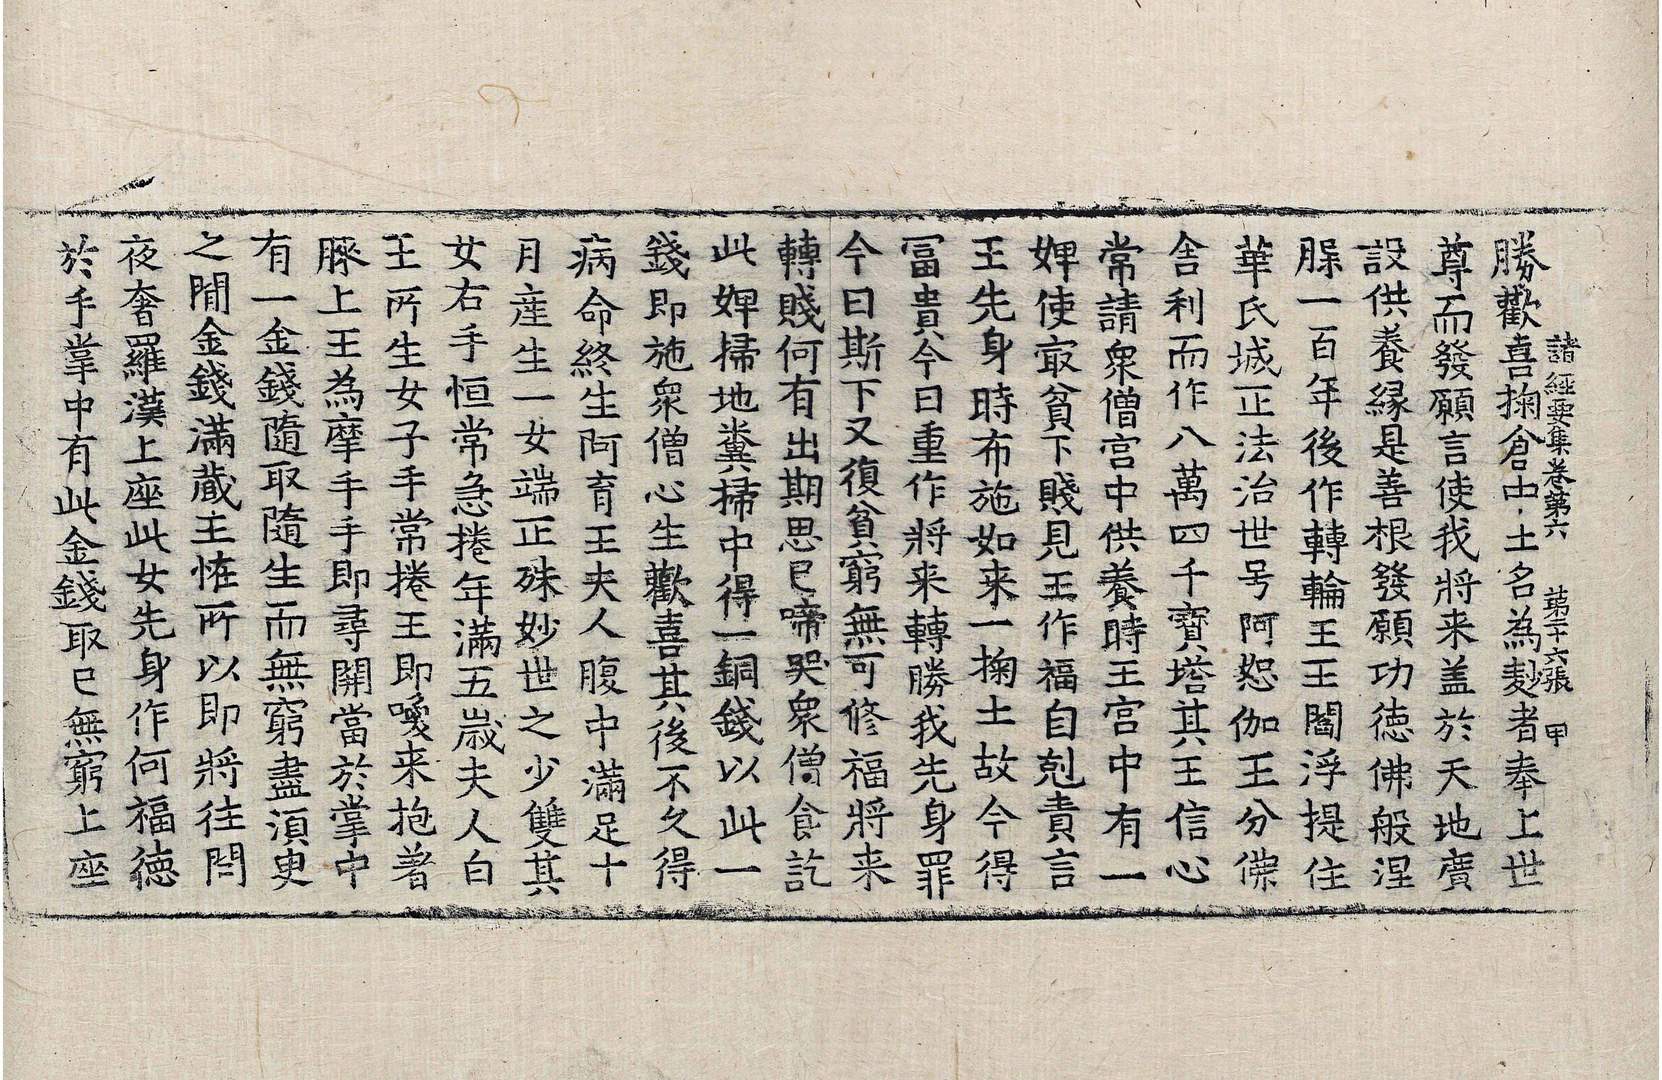 諸經要集卷第六 第二十六張 甲
勝歡喜掬倉中土名為麨者奉上世
尊而發願言使我將来盖於天地廣
設供養縁是善根發願功徳佛般涅
槃一百年後作轉輪王王閻浮提住
華氏城正法治世号阿恕伽王分佛
舎利而作八萬四千寶塔其王信心
常請衆僧宫中供養時王宫中有一
婢使㝡貧下賤見王作福自剋責言
王先身時布施如来一掬土故今得
冨貴今日重作將来轉勝我先身罪
今日斯下又復貧窮無可修福將来
轉賤何有出期思已啼哭衆僧食訖
此婢掃地糞掃中得一銅錢以此一
錢即施衆僧心生歡喜其後不久得
病命終生阿育王夫人腹中滿足十
月産生一女端正殊妙世之少雙其
女右手恒常急捲年滿五歳夫人白
王所生女子手常捲王即喚来抱著
膝上王為摩手手即尋開當於掌中
有一金錢隨取隨生而無窮盡湏臾
之間金錢滿藏王恠所以即將往問
夜奢羅漢上座此女先身作何福徳
於手掌中有此金錢取已無窮上座